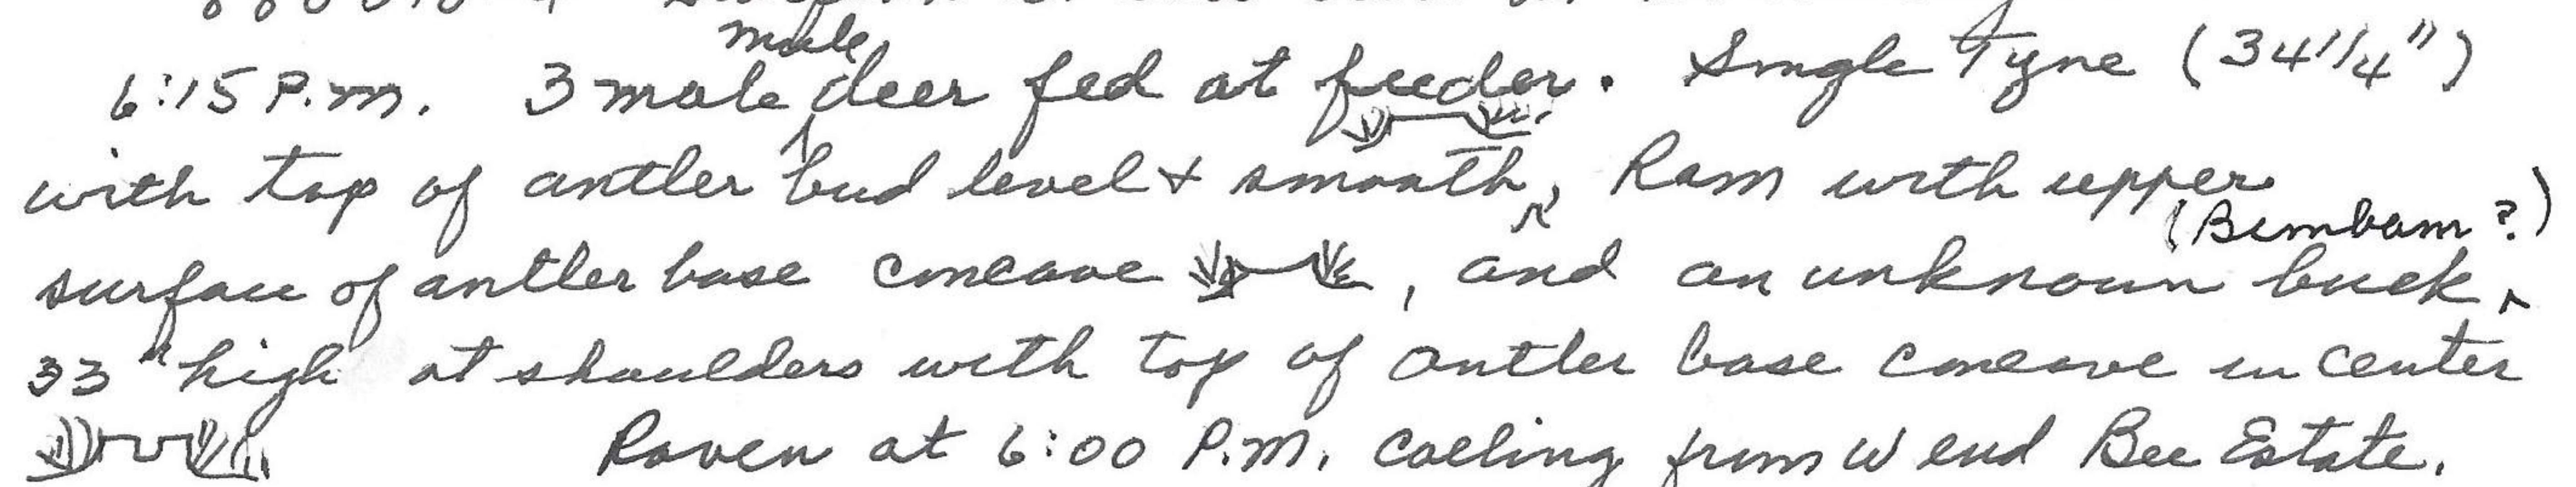 6:15 P.m. 3 male mule deer fed at feeder. Single Tyne (34 1/4")
with top of antler bud level + smooth, Ram with upper
surface of antler base concave , and an unknown buck (Bimbam?)
33" high at shoulders with top of antler base concave in center
Raven at 6:00 P.M. calling from W end Bee Estate.